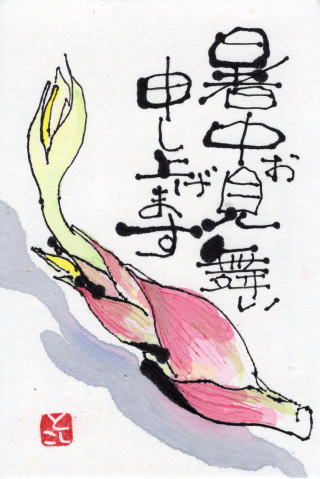 暑中お見舞い
申し上げます
とし